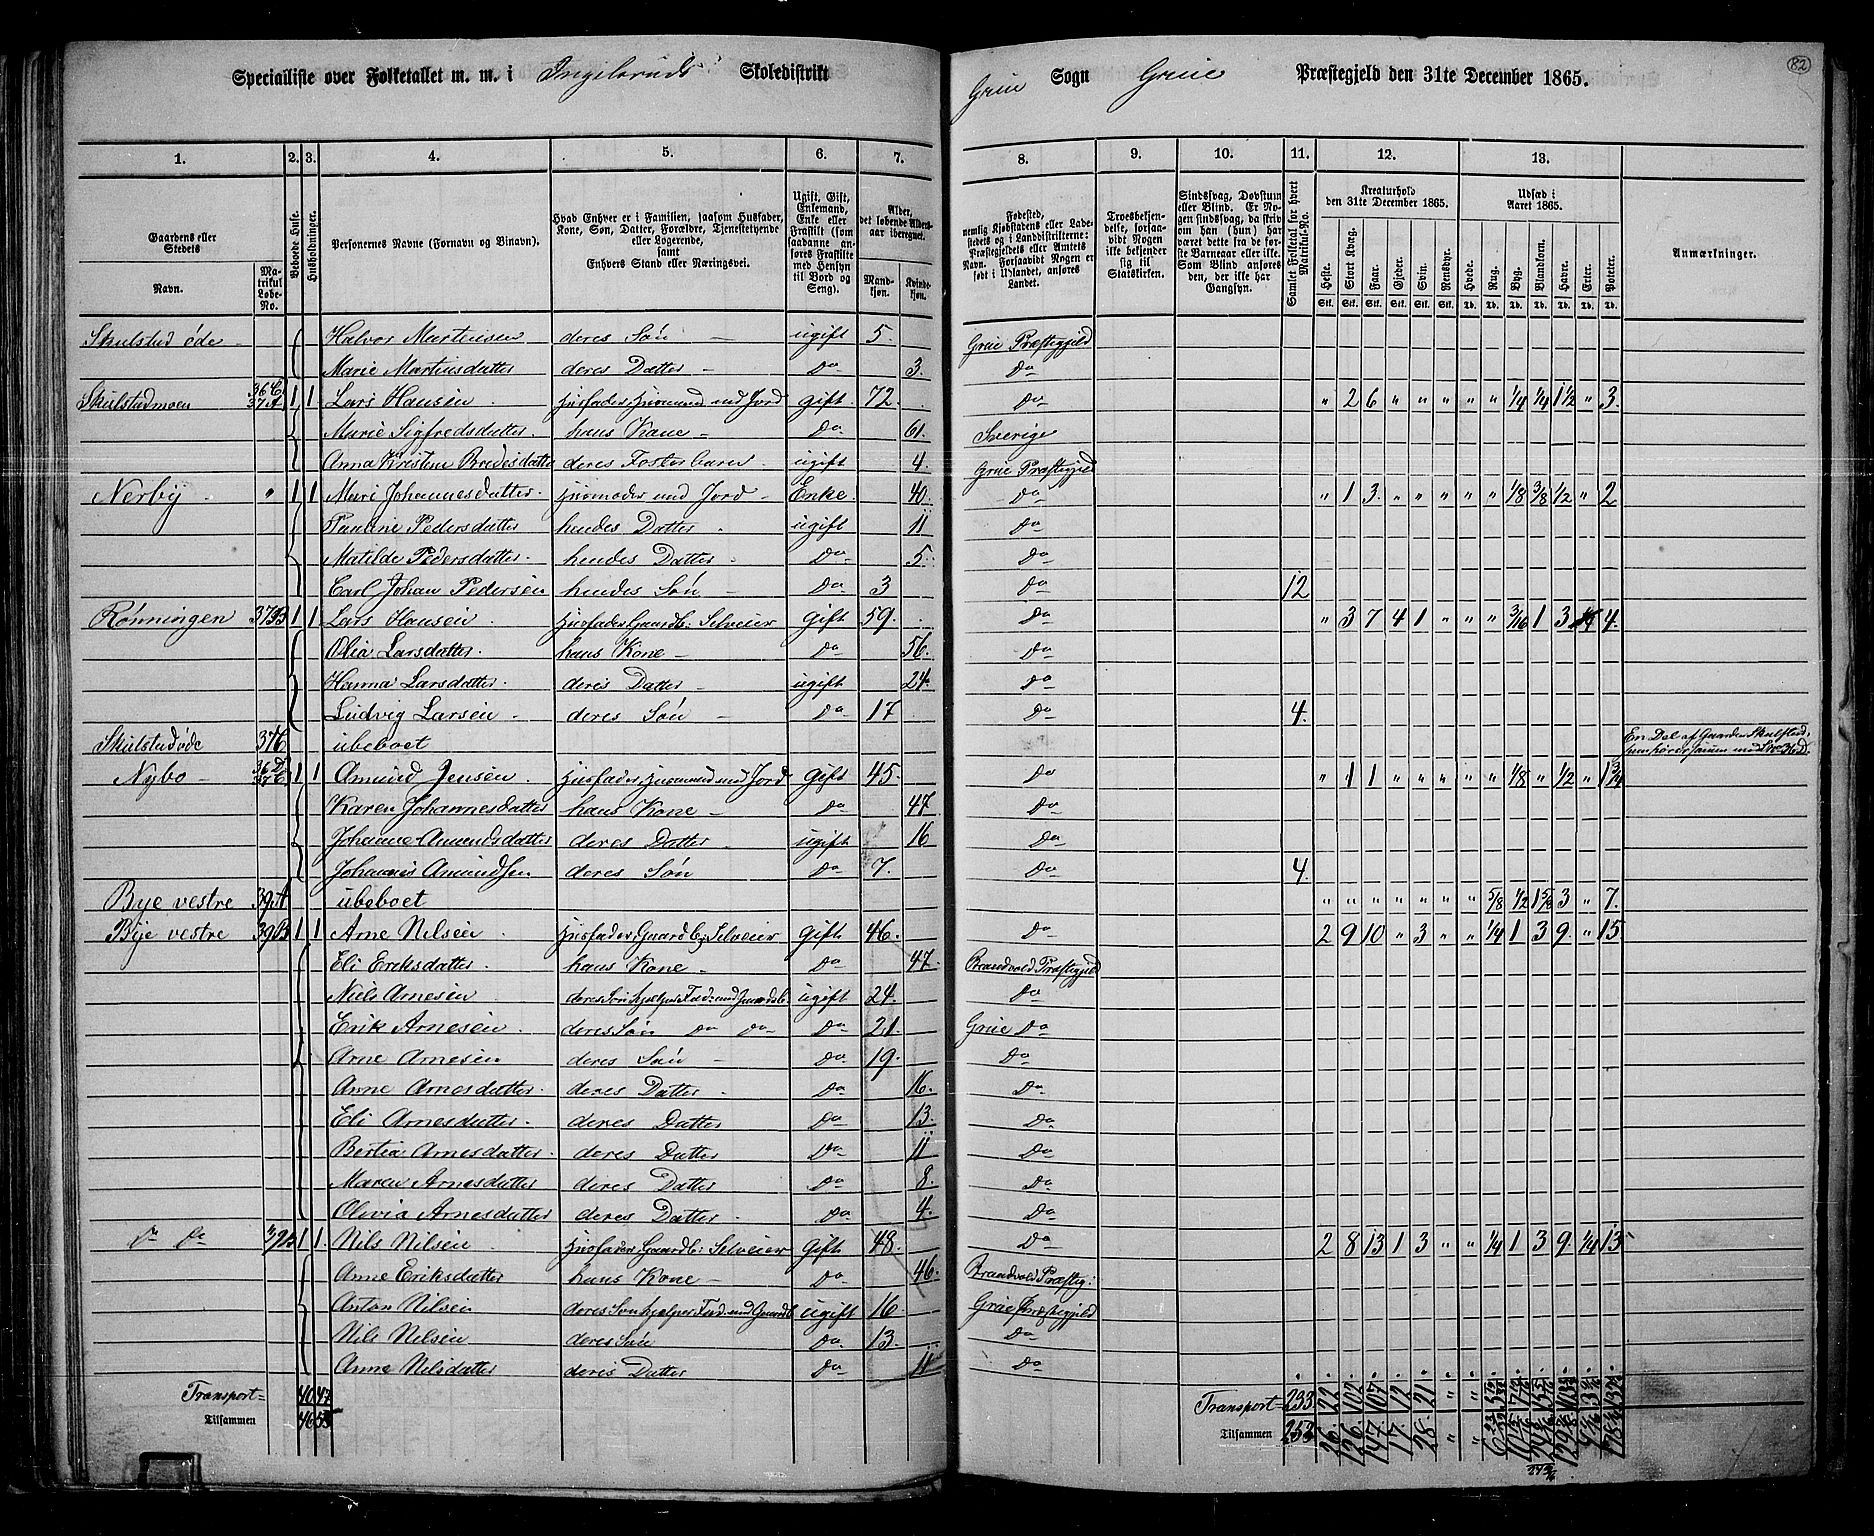 82
Specialliste over Folketallet m. m. i Ingelsruds Skoledistrikt Grue Sogn Grue Præstegjeld den 31te December 1865.
1. 2. 3. 4. 5. 6. 7. 8. 9. 10. 11. 12. 13.
Gaardens eller Stedets Navn. Matrikul Løbe-No. Beboede Huse. Husholdninger. Personernes Navne (Fornavn og Binavn).
Hvad Enhver er i Familien, saasom Husfader, Kone, Søn, Datter, Forældre, Tjenestetyende eller Logerende, samt Enhvers Stand eller Næringsvei.
Ugift, Gift, Enkemand, Enke eller Fraskilt (som saadanne anføres Fraskilte med Hensyn til Bord og Seng).
Alder, det løbende Aldersaar iberegnet. Mandkjøn. Kvindekjøn.
Fødested, nemlig Kjøbstadens eller Ladestedets og i Landdistrikterne: Præstegjeldets eller Amtets Navn. Forsaavidt Nogen er født i Udlandet, anføres Landet.
Troesbekjendelse, forsaavidt Nogen ikke bekjender sig til Statskirken.
Sindssvag, Døvstum eller Blind. Er Nogen sindssvag, da skrives om han (hun) har været dette fra de første Barneaar eller ikke. Som Blind ansøres den, der ikke har Gangsyn.
Samlet Folketal for hvert Matrikul-No.
Kreaturhold den 31te December 1865. Heste. Stort Kvæg. Faar. Gjeder. Svin. Rensdyr.
Udsæd i Aaret 1865. Hvede. Rug. Byg. Blandkorn. Havre. Erter. Poteter.
Anmærkninger.
Stk. Stk. Stk. Stk. Stk. Stk. Td. Td. Td. Td. Td. Td. Td.
Skulstad øde Halvor Martinsen deres Søn ugift 5. Grue Præstegjeld
Marie Martinsdatter deres Datter Do 3. Do
Skulstadmoen 36C 37A 1 1 Lars Hansen Husfader Huusmand med Jord gift 72. Do " 2 6 " " " " " 1/4 1/4 1 1/2 " 3.
Marie Sigfredsdatter hans Kone Do 61. Sverige
Anna Kristine Bredesdatter deres Fosterbarn ugift 4. Grue Præstegjeld
Nerby " 1 1 Mari Johannesdatter Husmoder med Jord Enke 40. Do " 1 3 " " " " " 1/8 3/8 1/2 " 2
Pauline Pedersdatter hendes Datter ugift 11 Do
Matilde Pedersdatter hendes Datter Do 5. Do
Carl Johan Pedersen hendes Søn Do 3 Do 12
Rønningen 37B 1 1 Lars Hansen Husfader Gaardb: Selveier gift 59. Do " 3 7 4 1 " " " 3/16 1 3 1/4 4.
Olia Larsdatter hans Kone Do 56. Do
Hanna Larsdatter deres Datter ugift 24. Do
Ludvig Larsen deres Søn Do 17 Do 4.
Skulstadøde 37C ubeboet En Del af Gaarden Skulstad, henhører sammen med Løbe 36d.
Nybo 36D 37C 1 1 Amund Jensen Husfader, Huusmand med Jord gift 45. Do " 1 1 " " " " " 1/8 " 1/2 " 1 3/4
Karen Johannesdatter hans Kone Do 47 Do
Johanne Amundsdatter deres Datter ugift 16 Do
Johannes Amundsen deres Søn Do 7. Do 4.
Bye vestre 39A ubeboet " " " " " " " 5/8 1/2 1 5/8 3 " 7.
Bye vestre 39B 1 1 Arne Nilsen Husfader, Gaardb: Selveier gift 46. Do 2 9 10 " 3 " " 1/4 1 3 9 " 15
Eli Eriksdatter hans Kone Do 47. Brandvold Præstegjeld
Niels Arnesen deres Søn hjelper Fad: med Gaardsb. ugift 24. Do
Erik Arnesen deres Søn Do Do Do 21. Grue Do
Arne Arnesen deres Søn Do 19. Do
Anne Arnesdatter deres Datter Do 16. Do
Eli Arnesdatter deres Datter Do 13. Do
Bertia Arnesdatter deres Datter Do 11 Do
Maren Arnesdatter deres Datter Do 8. Do
Olivia Arnesdatter deres Datter Do 4. Do
Do Do 39B 1 1 Nils Nilsen Husfader, Gaardb: Selveier gift 48. Do 2 8 13 1 3 " " 1/4 1 3 9 1/4 13
Anne Eriksdatter hans Kone Do 46. Brandvold Præsteg:
Anton Nilsen deres Søn hjelper Fad. med Gaardsb ugift 16 Grue Præstegjeld
Nils Nilsen deres Søn Do 13. Do
Anne Nilsdatter deres Datter Do 11 Do
Transport 40 47 Transport 233 22 102 107 12 21
Tilsammen 46 53 Tilsammen 253 26 126 147 17 28